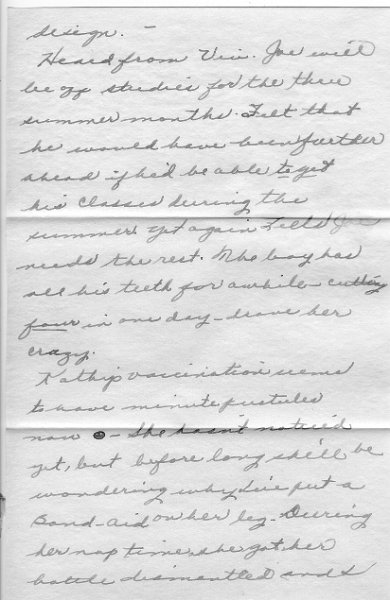 design. -
Heard from Viv. Joe will
be off studies for the three
summer months. Felt that
he would have been further
ahead if he'd be able to get
his classes during the
summer, yet again feels Joe
needs the rest. The boy has
all his teeth for awhile - cutting
four in one day - drove her
crazy.
Kathy's vaccination seems
to have minute pustules
now - She hasn't noticed
yet, but before long she'll be
wondering why I've put a
Band-aid on her leg. During
her nap time, she got her
bottle dismantled and